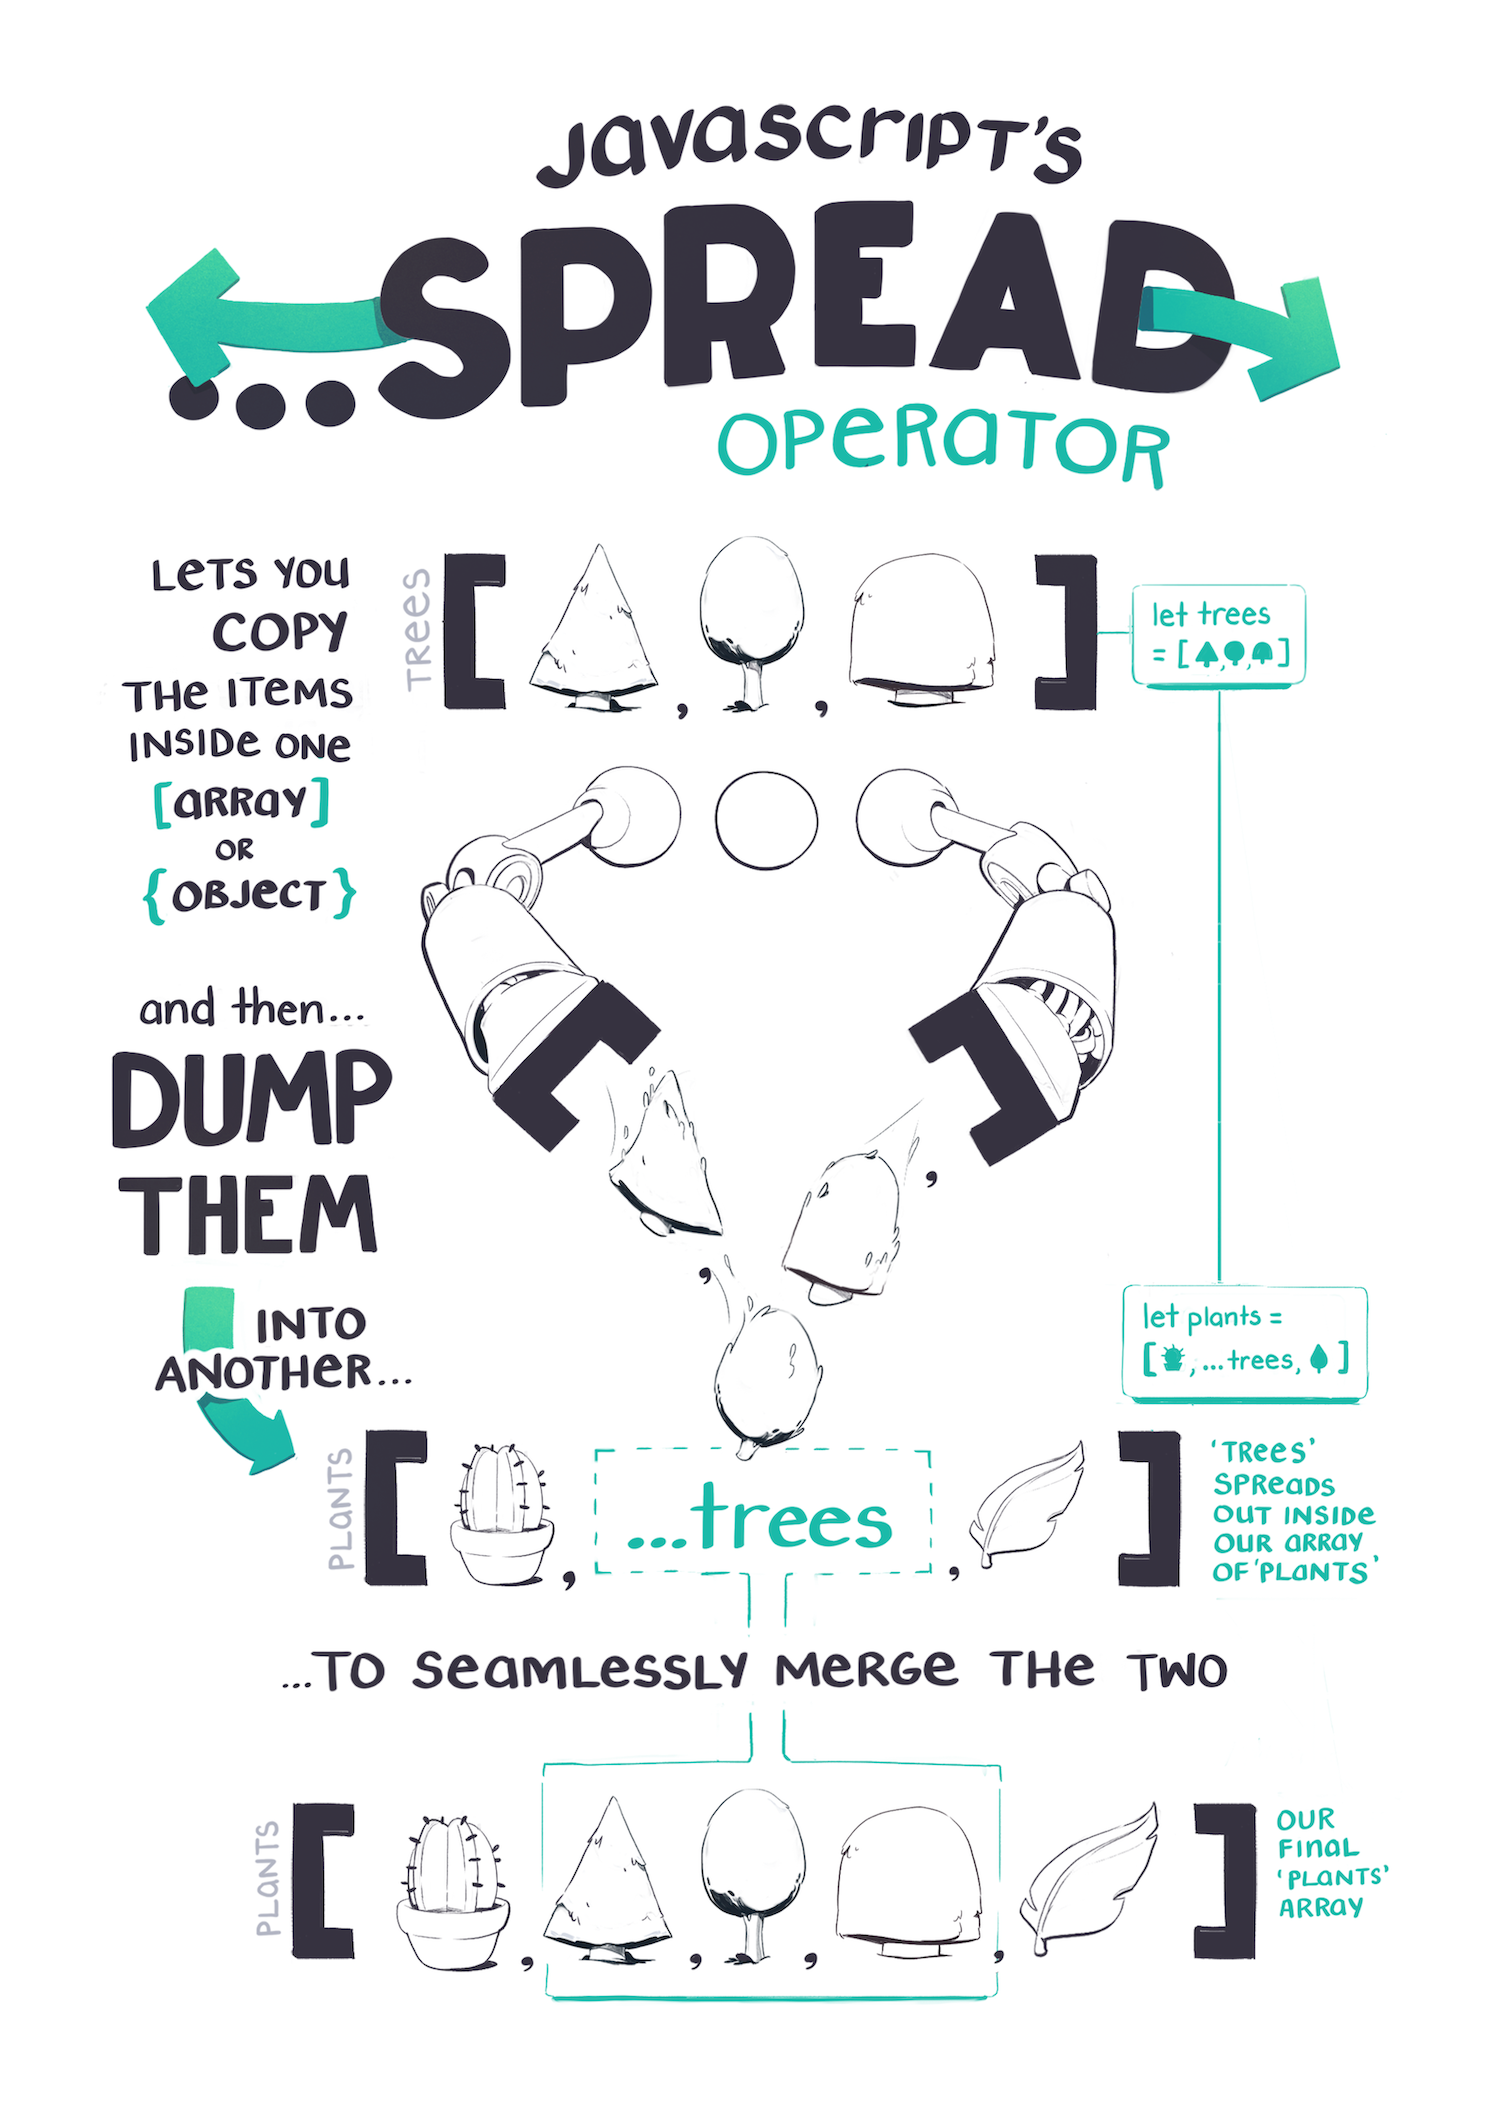 JavaScript's
...SPREAD
OPERATOR
LETS YOU
COPY
THE ITEMS
INSIDE ONE
[ARRAY]
OR
{OBJECT}
TREES
[ , , ]
let trees
= [ , , ]
and then...
DUMP
THEM
INTO
ANOTHER...
let plants =
[ , ...trees, ]
PLANTS
[ , ...trees , ]
'TREES'
SPREADS
OUT INSIDE
OUR ARRAY
OF 'PLANTS'
...TO SEAMLESSLY MERGE THE TWO
PLANTS
[ , , , , ]
OUR
FINAL
'PLANTS'
ARRAY